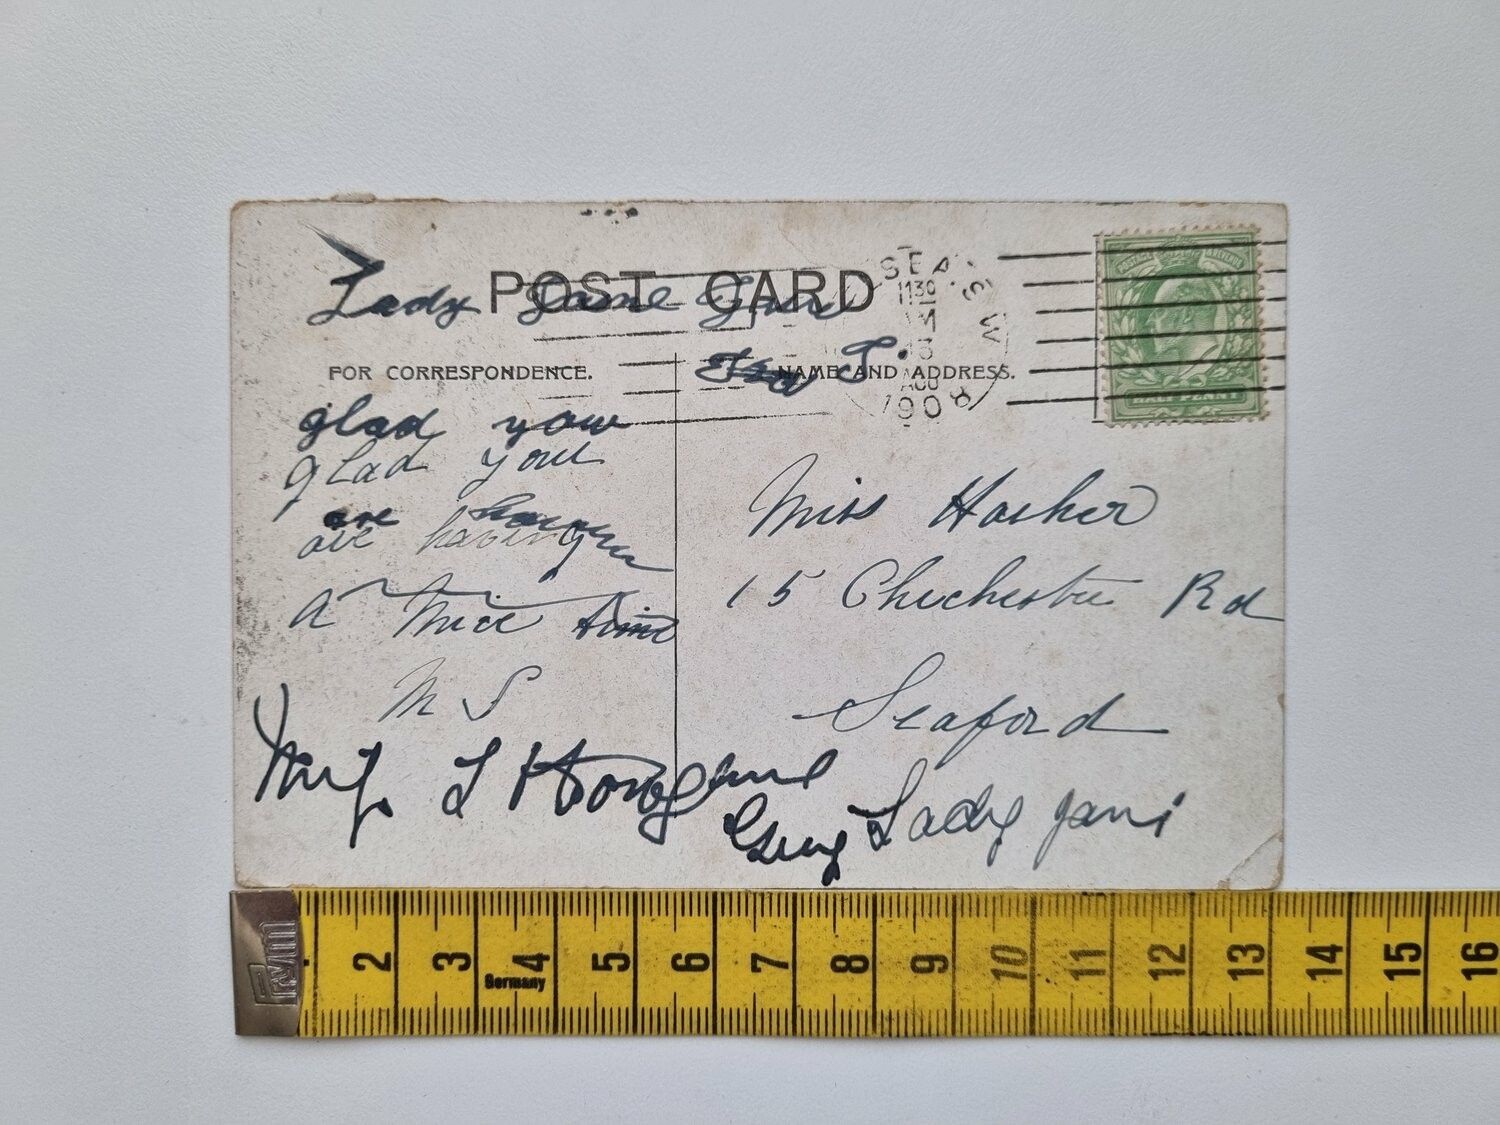 POST CARD
Lady Jane Grey
FOR CORRESPONDENCE.
NAME AND ADDRESS.
SEA
S W
1130 AM
13
AUG
1908
POSTAGE REVENUE
HALF PENNY
glad you
glad you
are having
are having
a nice time
M S
Miss
15 Chichester Rd
Seaford
Lady Jane
Prym
2 3 4 5 6 7 8 9 10 11 12 13 14 15 16
Germany